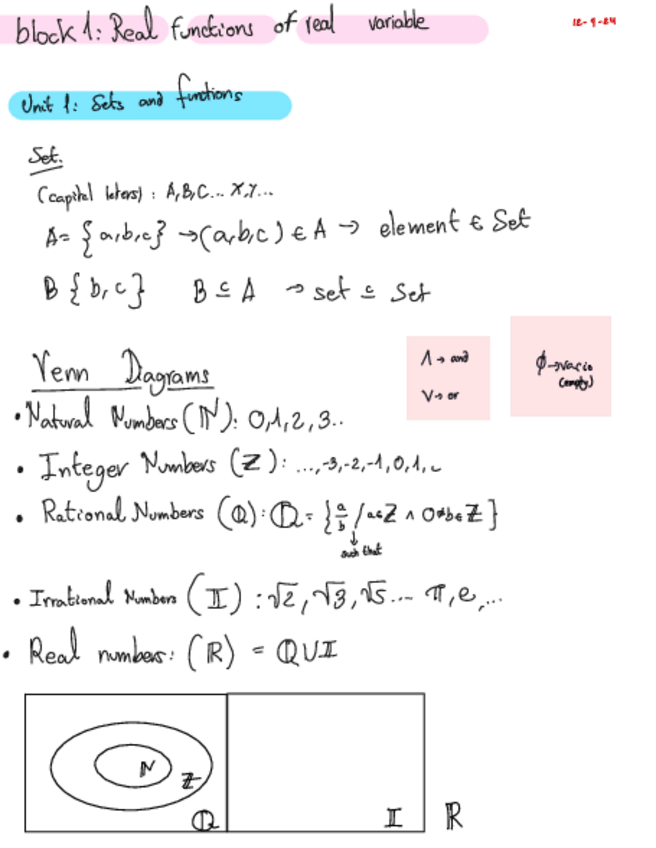 block 1: Real functions of real variable
12-9-24
Unit 1: Sets and funtions
Set.
(capital leters): A, B, C... X, Y...
A= {a,b,c} →(a,b,c) ∈ A → element ∈ Set
B {b,c} B ⊆ A → set ⊆ Set
Λ→ and
V→ or
∅→vacio
(empty)
Venn Diagrams
• Natural Numbers (ℕ): 0,1,2,3..
• Integer Numbers (ℤ): ...,-3,-2,-1,0,1,...
• Rational Numbers (ℚ): ℚ= {a/b / a∈ℤ ∧ 0≠b∈ℤ}
↓
such that
• Irrational Numbers (𝕀): √2, √3, √5... π, e,...
• Real numbers: (ℝ) = ℚ∪𝕀
ℕ
ℤ
ℚ
𝕀
ℝ